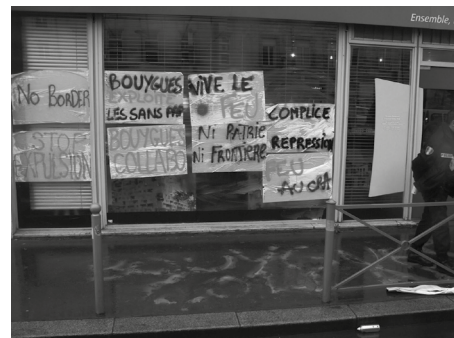 Ensemble,
No BORDER
STOP
EXPULSION
BOUYGUES
EXPLOITE
LES SANS PAP
BOUYGUES
COLLABO
VIVE LE
FEU
Ni PATRIE
Ni FRONTIERE
COMPLICE
REPRESSION
FEU
AU CRA